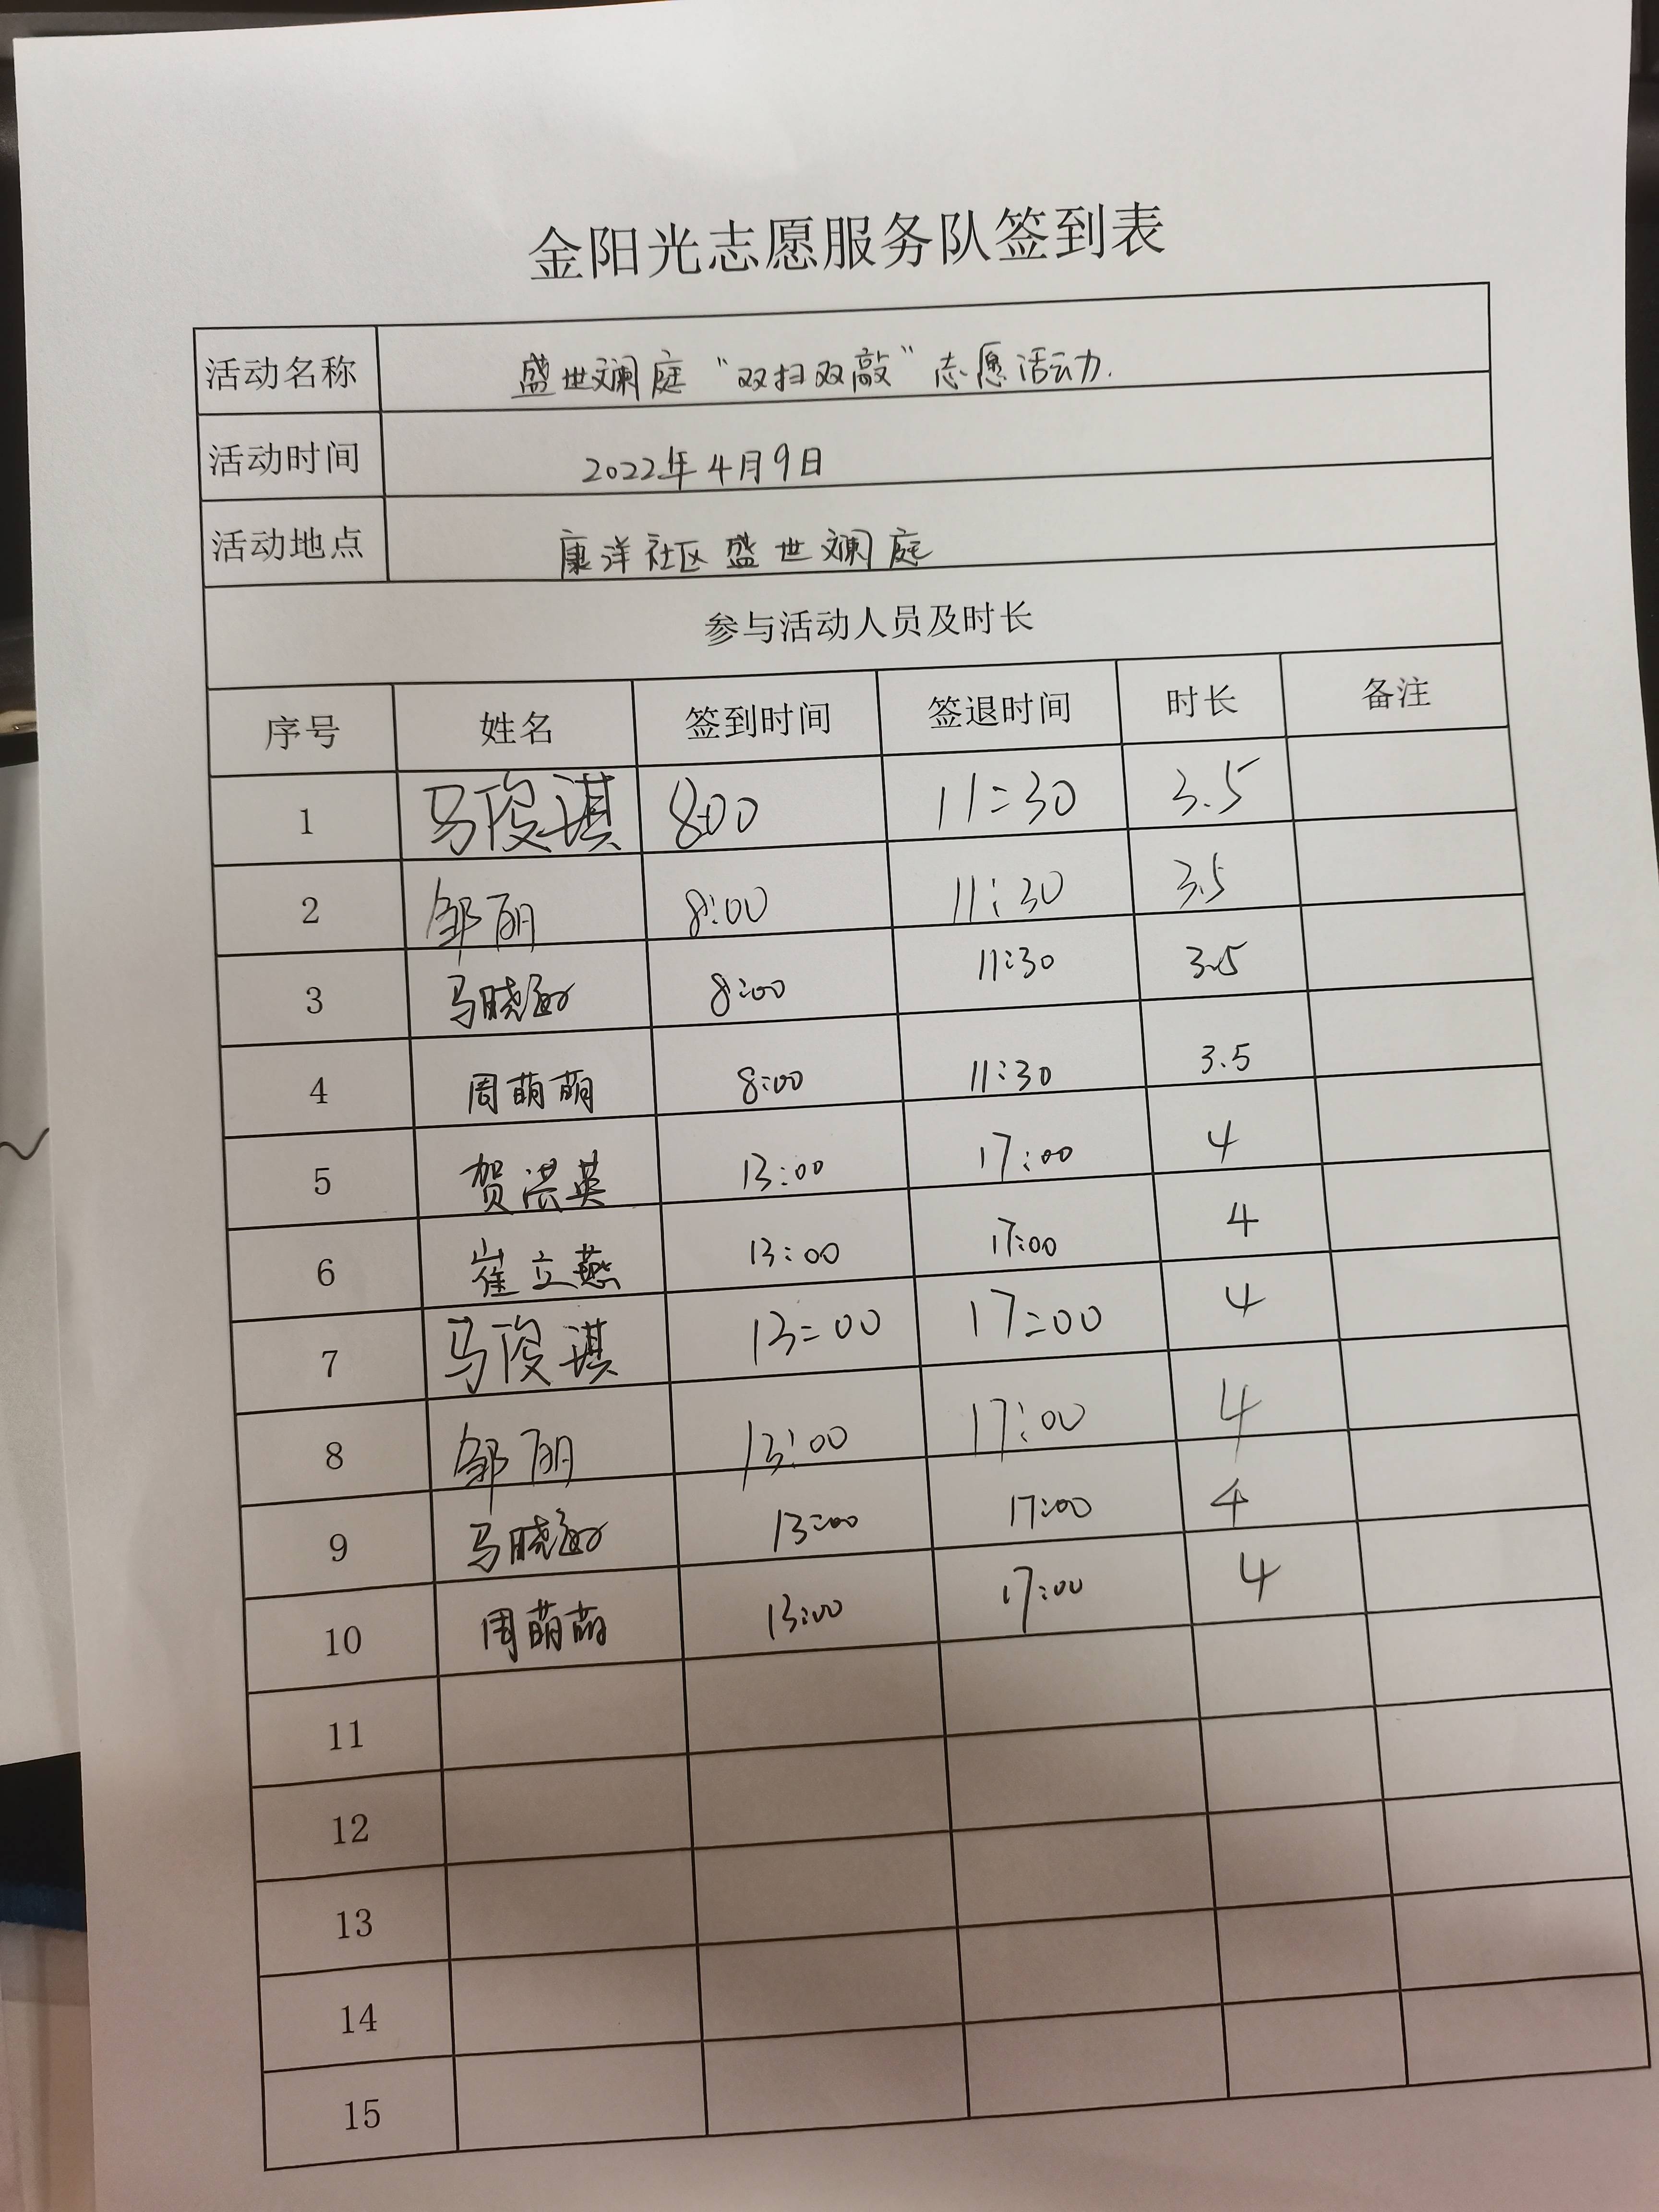 金阳光志愿服务队签到表
活动名称 盛世斓庭“双扫双敲”志愿活动.
活动时间 2022年4月9日
活动地点 康洋社区盛世斓庭
参与活动人员及时长
序号 姓名 签到时间 签退时间 时长 备注
1 马俊琪 8:00 11:30 3.5
2 邹丽 8:00 11:30 3.5
3 马晓敏 8:00 11:30 3.5
4 周萌萌 8:00 11:30 3.5
5 贺洪英 13:00 17:00 4
6 崔立燕 13:00 17:00 4
7 马俊琪 13:00 17:00 4
8 邹丽 13:00 17:00 4
9 马晓敏 13:00 17:00 4
10 周萌萌 13:00 17:00 4
11
12
13
14
15